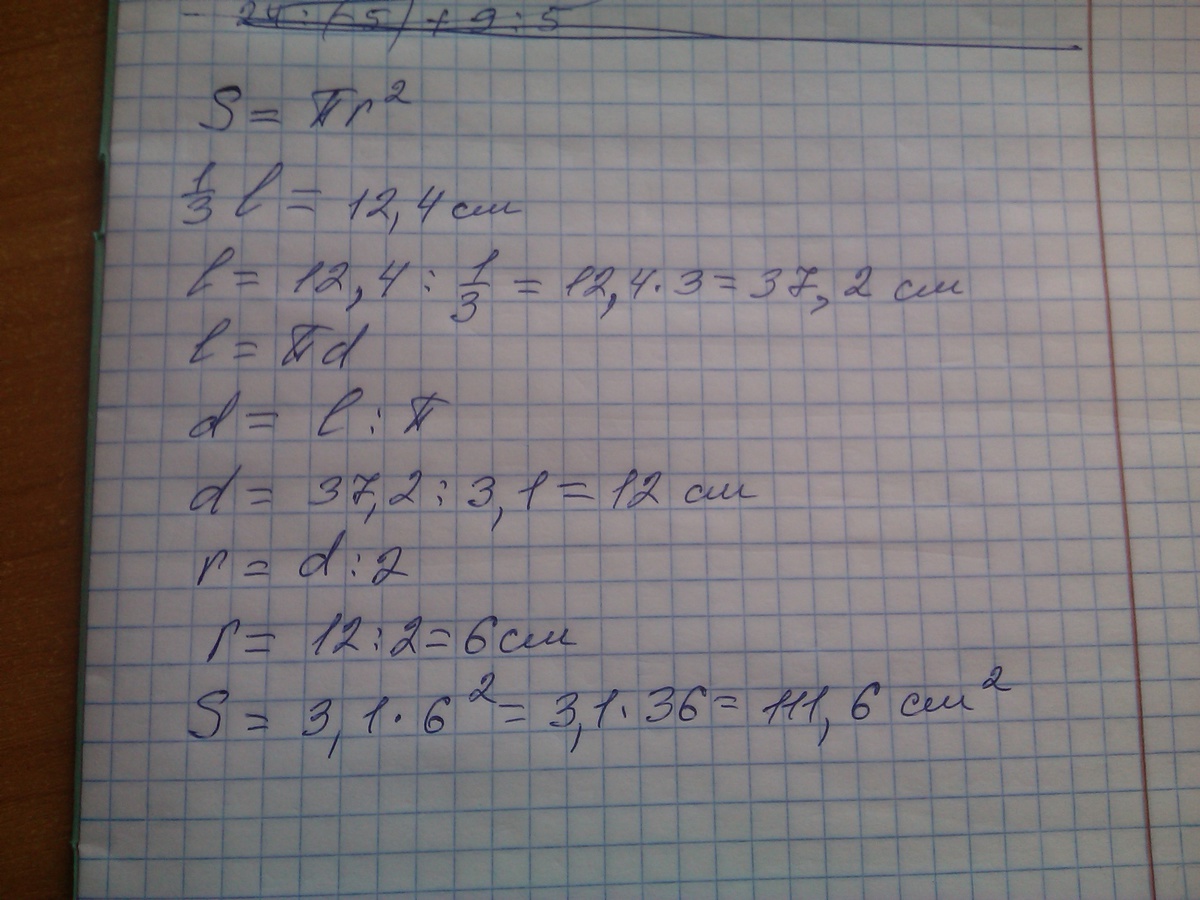 - 24 : (-5) + 9 : 5
S = πr²
1/3 l = 12,4 см
l = 12,4 : 1/3 = 12,4 · 3 = 37,2 см
l = πd
d = l : π
d = 37,2 : 3,1 = 12 см
r = d : 2
r = 12 : 2 = 6 см
S = 3,1 · 6² = 3,1 · 36 = 111,6 см²